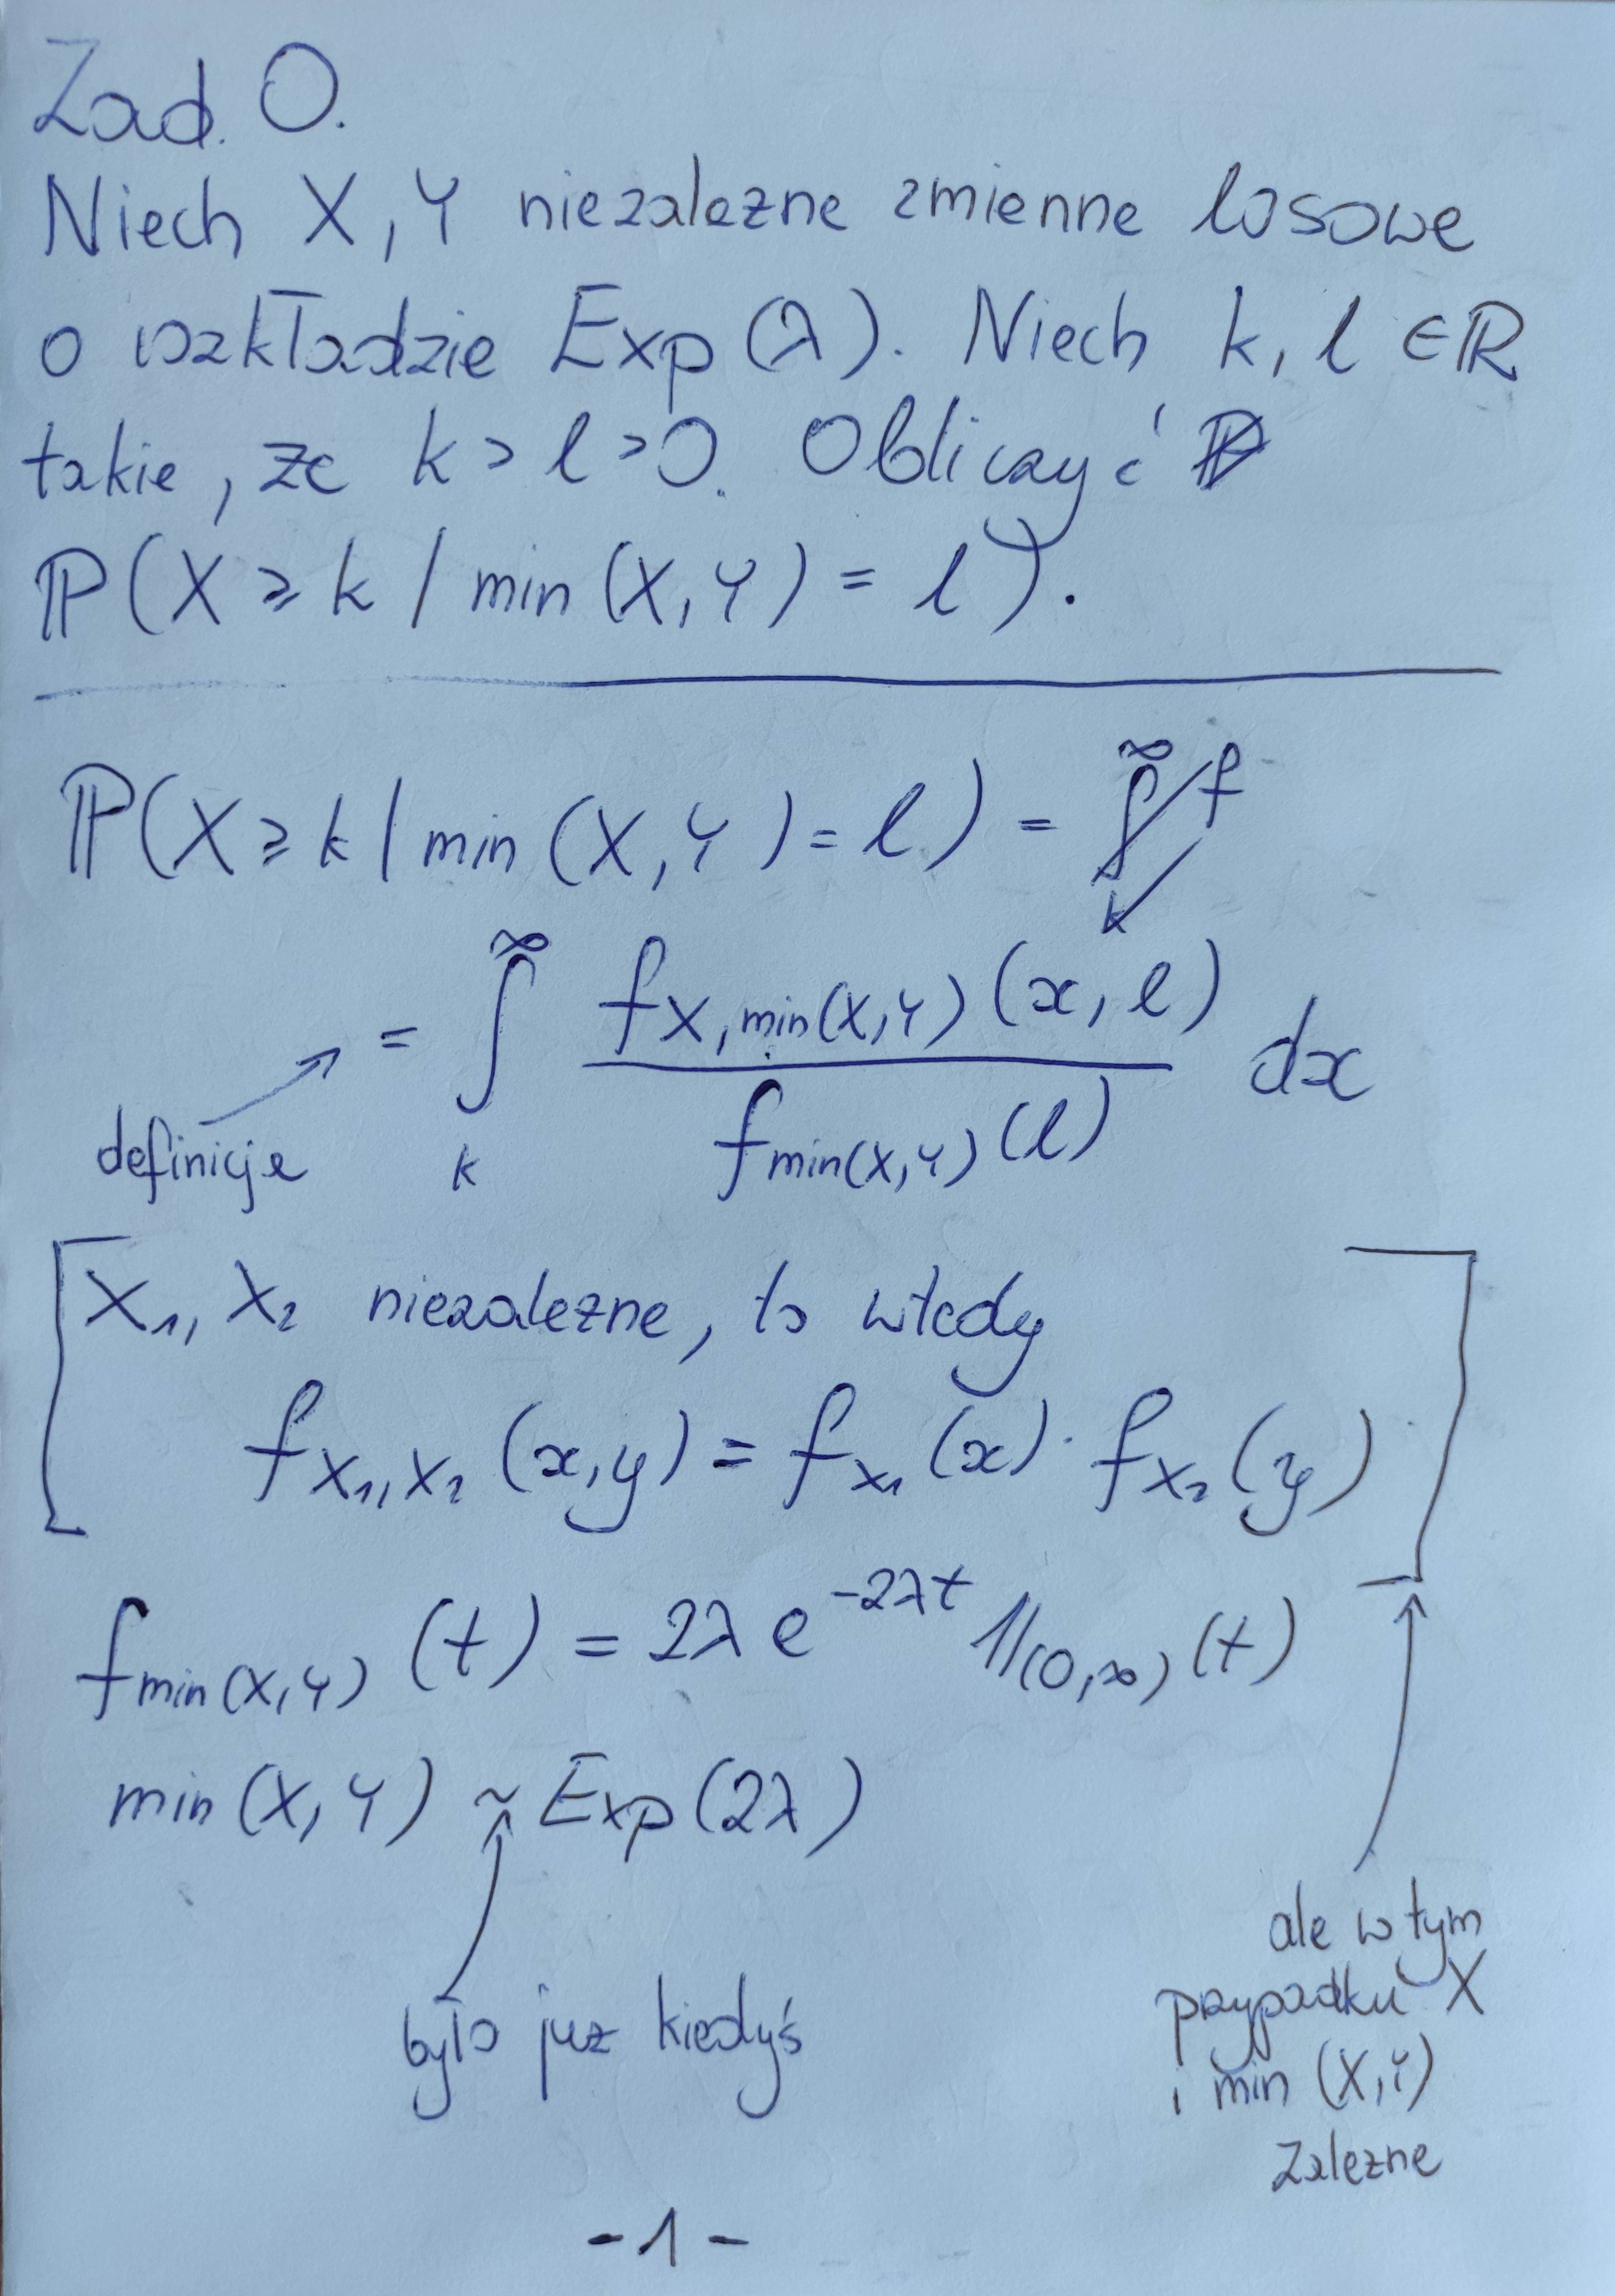 Zad. 0.
Niech X, Y niezależne zmienne losowe
o rozkładzie Exp(λ). Niech k, l ∈ ℝ
takie, że k > l > 0. Obliczyć
ℙ(X ≥ k / min(X, Y) = l).
ℙ(X ≥ k | min(X, Y) = l) =
= ∫_k^∞ f_{X, min(X,Y)}(x, l) / f_{min(X,Y)}(l) dx
definicja
X₁, X₂ niezależne, to wtedy
f_{X₁,X₂}(x,y) = f_{X₁}(x) · f_{X₂}(y)
f_{min(X,Y)}(t) = 2λ e^{-2λt} 𝟙_{(0,∞)}(t)
min(X, Y) ~ Exp(2λ)
było już kiedyś
ale w tym
przypadku X
i min (X,Y)
zależne
- 1 -